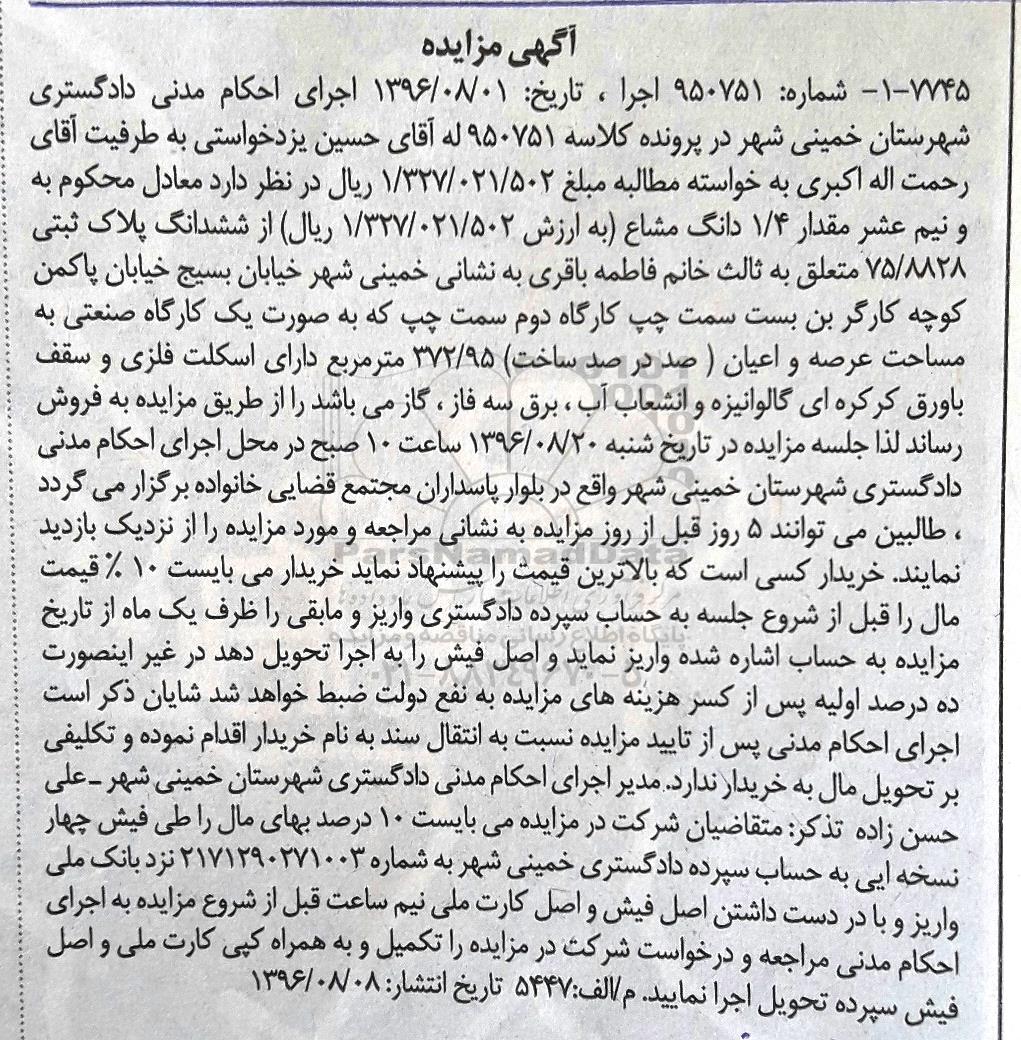 آگهی مزایده
۷۷۴۵-۱- شماره: ۹۵۰۷۵۱ اجرا ، تاریخ: ۱۳۹۶/۰۸/۰۱ اجرای احکام مدنی دادگستری
شهرستان خمینی شهر در پرونده کلاسه ۹۵۰۷۵۱ له آقای حسین یزدخواستی به طرفیت آقای
رحمت اله اکبری به خواسته مطالبه مبلغ ۱/۳۲۷/۰۲۱/۵۰۲ ریال در نظر دارد معادل محکوم به
و نیم عشر مقدار ۱/۴ دانگ مشاع (به ارزش ۱/۳۲۷/۰۲۱/۵۰۲ ریال) از ششدانگ پلاک ثبتی
۷۵/۸۸۲۸ متعلق به ثالث خانم فاطمه باقری به نشانی خمینی شهر خیابان بسیج خیابان پاکمن
کوچه کارگر بن بست سمت چپ کارگاه دوم سمت چپ که به صورت یک کارگاه صنعتی به
مساحت عرصه و اعیان ( صد در صد ساخت) ۳۷۲/۹۵ مترمربع دارای اسکلت فلزی و سقف
باورق کرکره ای گالوانیزه و انشعاب آب ، برق سه فاز ، گاز می باشد را از طریق مزایده به فروش
رساند لذا جلسه مزایده در تاریخ شنبه ۱۳۹۶/۰۸/۲۰ ساعت ۱۰ صبح در محل اجرای احکام مدنی
دادگستری شهرستان خمینی شهر واقع در بلوار پاسداران مجتمع قضایی خانواده برگزار می گردد
، طالبین می توانند ۵ روز قبل از روز مزایده به نشانی مراجعه و مورد مزایده را از نزدیک بازدید
نمایند. خریدار کسی است که بالاترین قیمت را پیشنهاد نماید خریدار می بایست ۱۰ ٪ قیمت
مال را قبل از شروع جلسه به حساب سپرده دادگستری واریز و مابقی را ظرف یک ماه از تاریخ
مزایده به حساب اشاره شده واریز نماید و اصل فیش را به اجرا تحویل دهد در غیر اینصورت
ده درصد اولیه پس از کسر هزینه های مزایده به نفع دولت ضبط خواهد شد شایان ذکر است
اجرای احکام مدنی پس از تایید مزایده نسبت به انتقال سند به نام خریدار اقدام نموده و تکلیفی
بر تحویل مال به خریدار ندارد. مدیر اجرای احکام مدنی دادگستری شهرستان خمینی شهر ـ علی
حسن زاده تذکر: متقاضیان شرکت در مزایده می بایست ۱۰ درصد بهای مال را طی فیش چهار
نسخه ایی به حساب سپرده دادگستری خمینی شهر به شماره ۲۱۷۱۲۹۰۲۷۱۰۰۳ نزد بانک ملی
واریز و با در دست داشتن اصل فیش و اصل کارت ملی نیم ساعت قبل از شروع مزایده به اجرای
احکام مدنی مراجعه و درخواست شرکت در مزایده را تکمیل و به همراه کپی کارت ملی و اصل
فیش سپرده تحویل اجرا نمایید. م/الف:۵۴۴۷ تاریخ انتشار: ۱۳۹۶/۰۸/۰۸
ParsNamadData
پایگاه اطلاع رسانی مناقصه و مزایده
۰۲۱-۸۸۳۴۹۶۷۰-۵